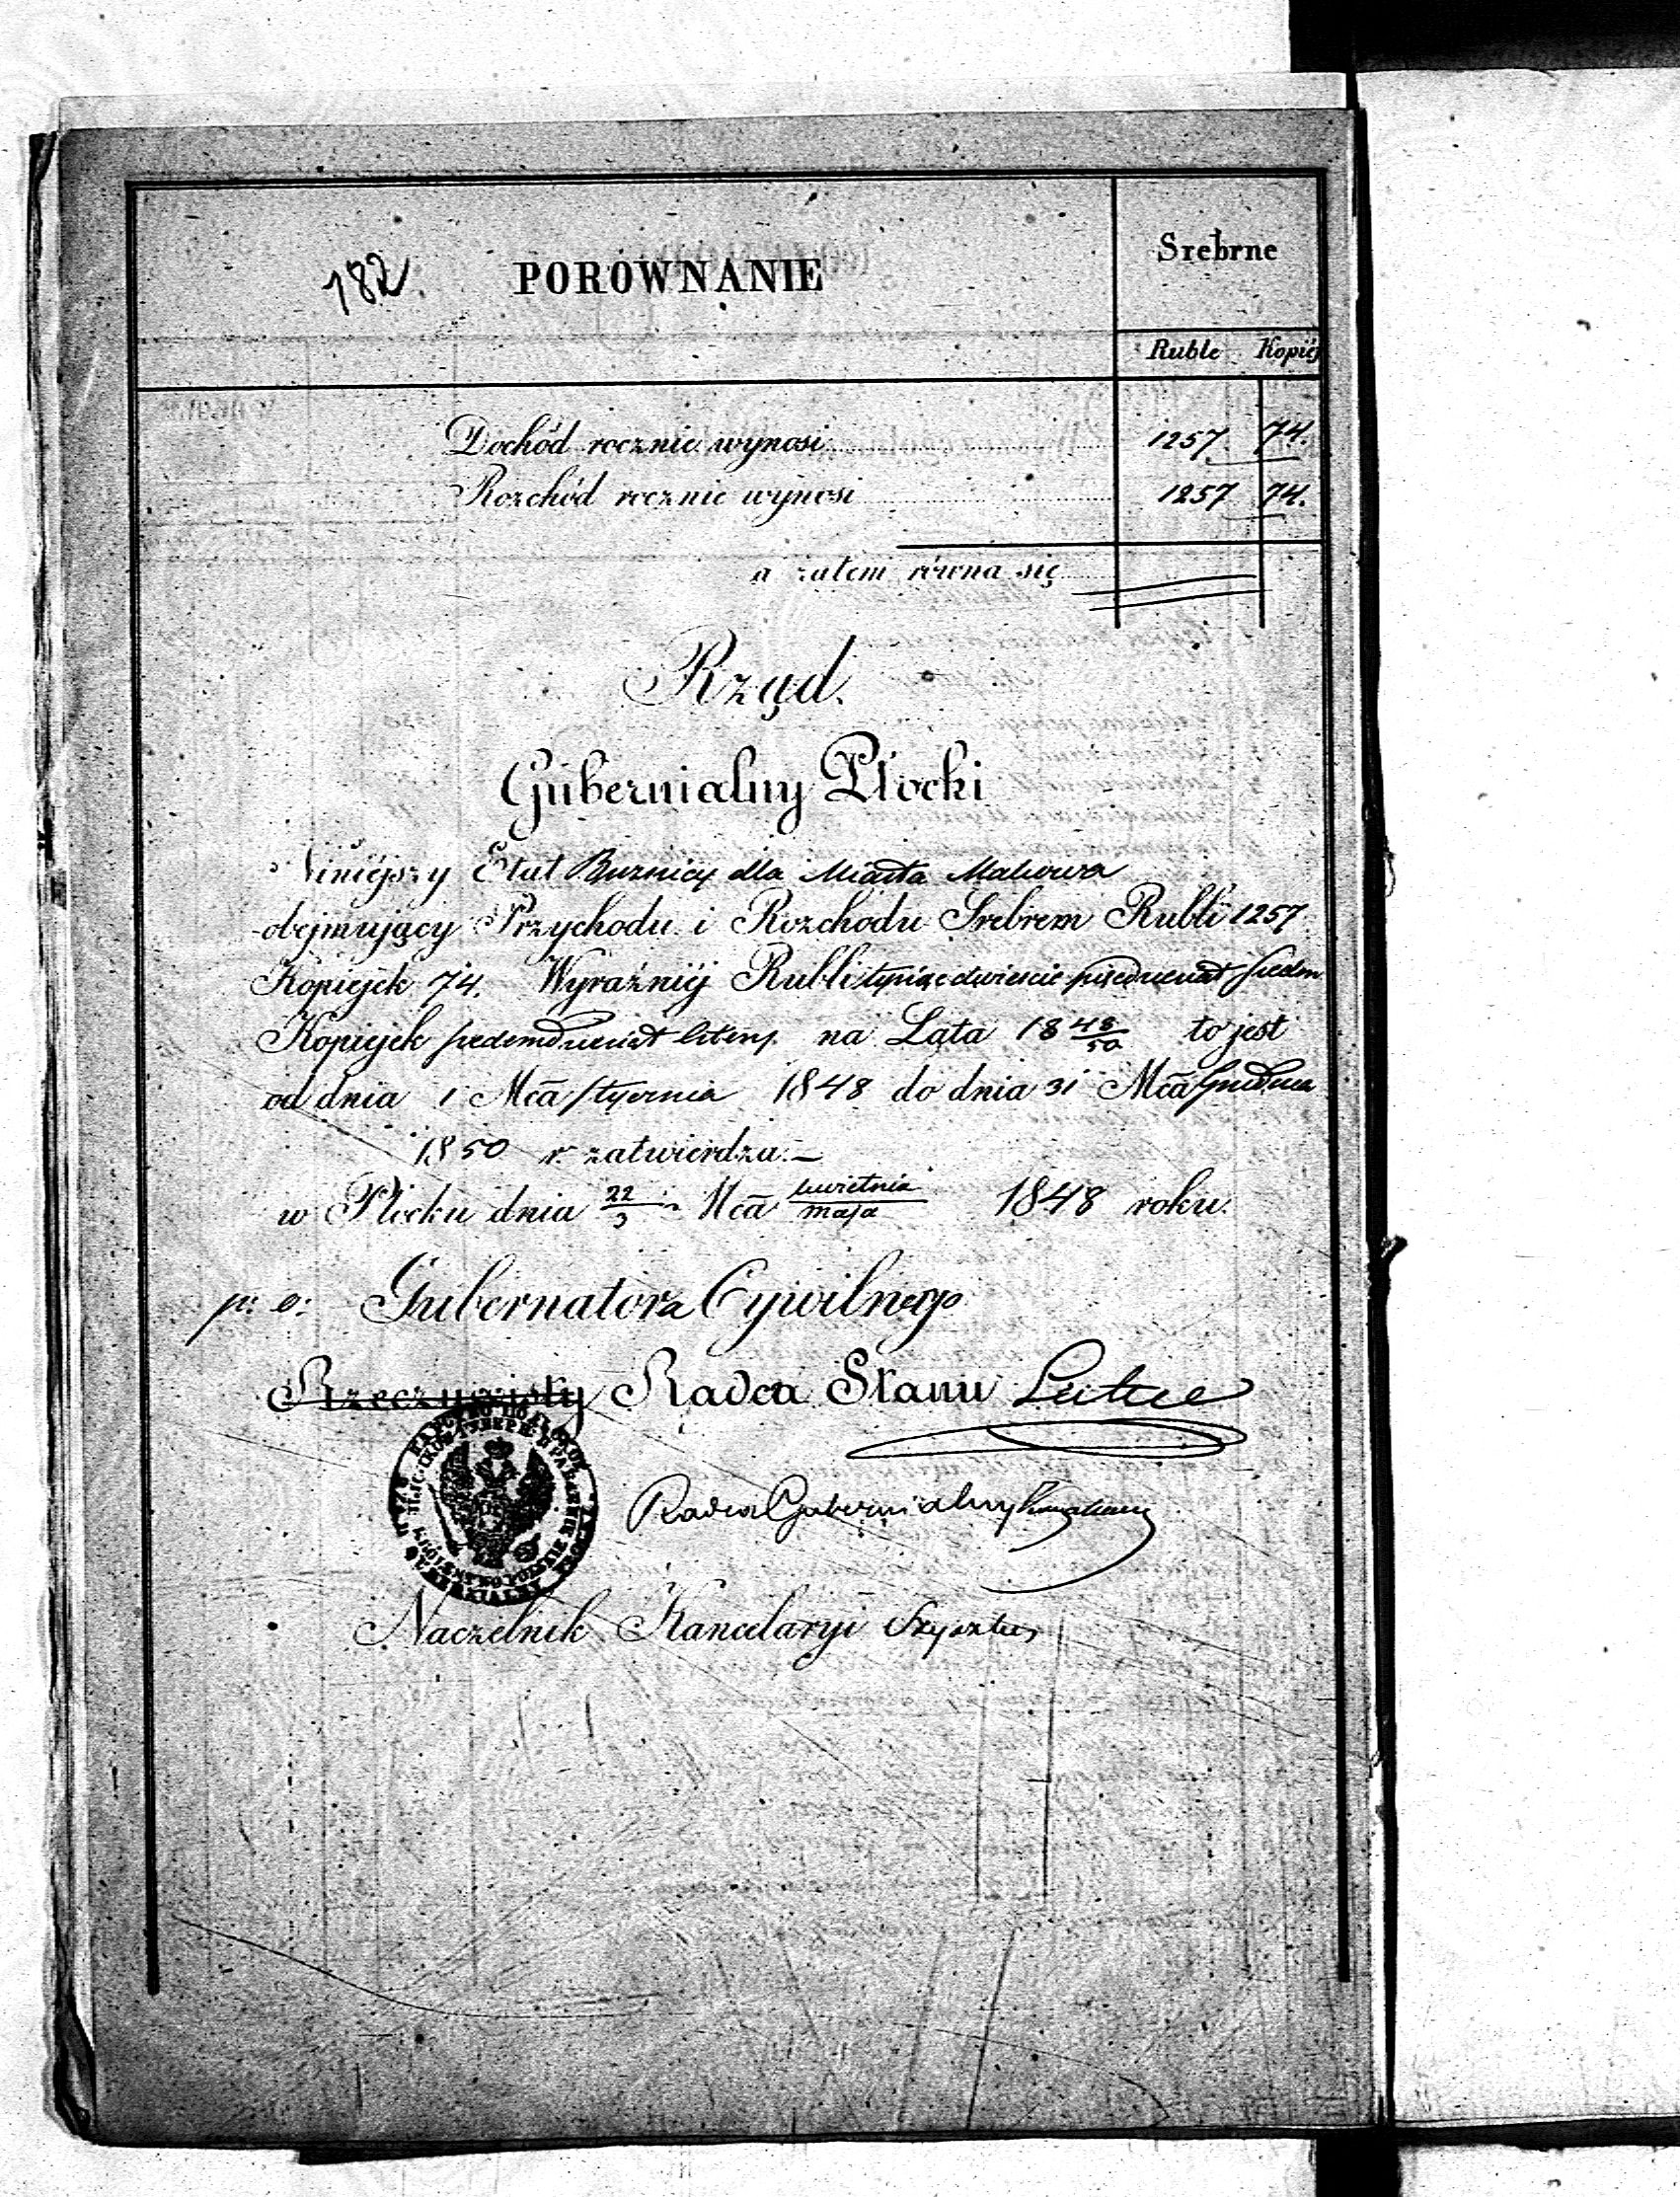 182. PORÓWNANIE
Srebrne
Ruble Kopiej
Dochód rocznie wynosi 1257 74.
Rozchód rocznie wynosi 1257 74.
a zatem równa się
Rząd
Gubernialny Płocki
Niniejszy Etat Buznicy dla Miasta Makowa
obejmujący Przychodu i Rozchodu Srebrem Rubli 1257
Kopiejek 74. Wyraźniej Rubli tysiąc dwieście pięćdziesiat siedm
Kopiejek siedemdziesiat cztery na Lata 18 48/50 to jest
od dnia 1 Mca stycznia 1848 do dnia 31 Mca Grudnia
1850 r. zatwierdza.—
w Płocku dnia 22/3 Mca kwietnia/maja 1848 roku.
p. o: Gubernatora Cywilnego
Rzeczywisty Radca Stanu
Radca Gubernialny
Naczelnik Kancelaryi